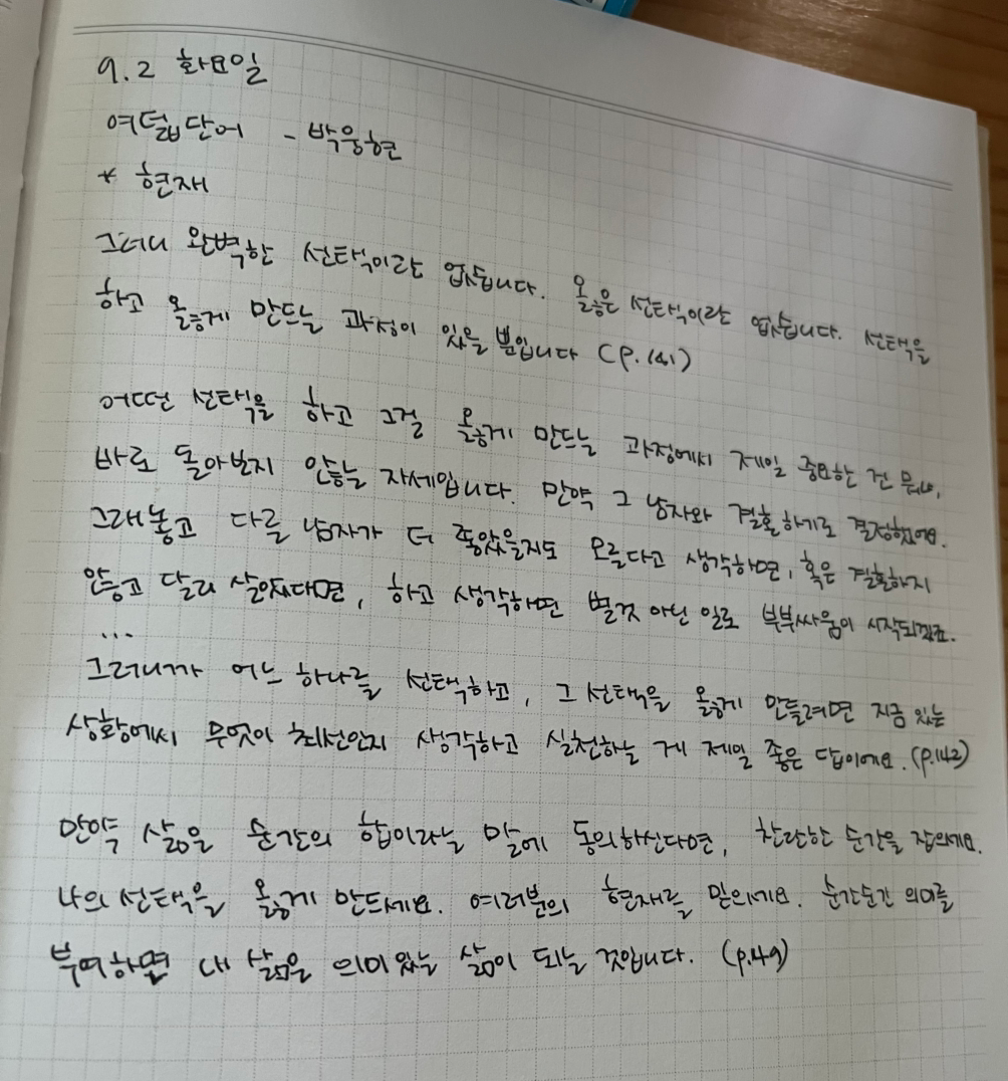 9.2 화요일
여덟단어 - 박웅현
* 현재
그러니 완벽한 선택이란 없습니다. 옳은 선택이란 없습니다. 선택을
하고 옳게 만드는 과정이 있을 뿐입니다 (P.141)
어떤 선택을 하고 그걸 옳게 만드는 과정에서 제일 중요한 건 뭐냐,
바로 돌아보지 않는 자세입니다. 만약 그 남자와 결혼하기로 결정했어요.
그래놓고 다른 남자가 더 좋았을지도 모른다고 생각하면, 혹은 결혼하지
않고 달리 살았다면, 하고 생각하면 별것 아닌 일로 부부싸움이 시작되겠죠.
...
그러니까 어느 하나를 선택하고, 그 선택을 옳게 만들려면 지금 있는
상황에서 무엇이 최선인지 생각하고 실천하는 게 제일 좋은 답이에요. (P.142)
만약 삶은 순간의 합이라는 말에 동의하신다면, 찬란한 순간을 잡으세요.
나의 선택을 옳게 만드세요. 여러분의 현재를 믿으세요. 순간순간 의미를
부여하면 내 삶은 의미 있는 삶이 되는 것입니다. (P.149)